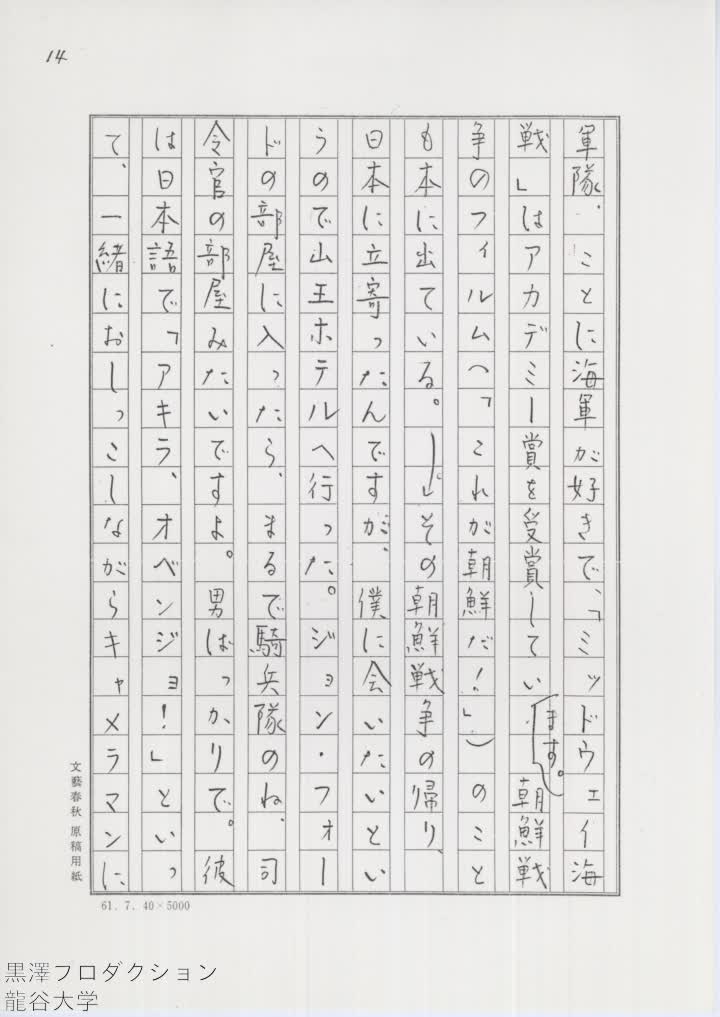 14
軍隊、ことに海軍が好きで、「ミッドウェイ海
戦」はアカデミー賞を受賞してい
ます。
朝鮮戦
争のフィルム(「これが朝鮮だ!」)のこと
も本に出ている。――」その朝鮮戦争の帰り、
日本に立寄ったんですが、僕に会いたいとい
うので山王ホテルへ行った。ジョン・フォー
ドの部屋に入ったら、まるで騎兵隊のね、司
令官の部屋みたいですよ。男ばっかりで。彼
は日本語で「アキラ、オベンジョ!」といっ
て、一緒におしっこしながらキャメラマンに
文藝春秋 原稿用紙
61. 7. 40×5000
黒澤プロダクション
龍谷大学